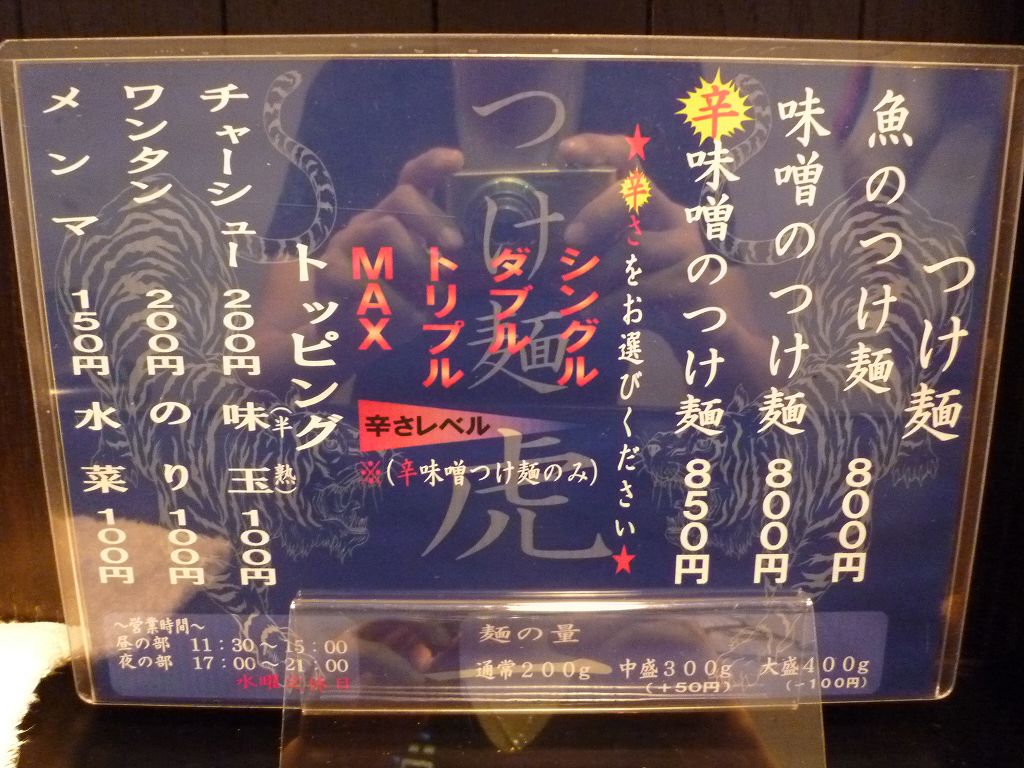 つけ麺
魚のつけ麺 800円
味噌のつけ麺 800円
辛味噌のつけ麺 850円
★辛さをお選びください★
シングル
ダブル
トリプル
MAX
辛さレベル
※(辛味噌つけ麺のみ)
つけ麺 虎
トッピング
チャーシュー 200円
ワンタン 200円
メンマ 150円
味玉(半熟) 100円
のり 100円
水菜 100円
～営業時間～
昼の部 11:30～15:00
夜の部 17:00～21:00
水曜定休日
麺の量
通常200g 中盛300g 大盛400g
(+50円) (-100円)